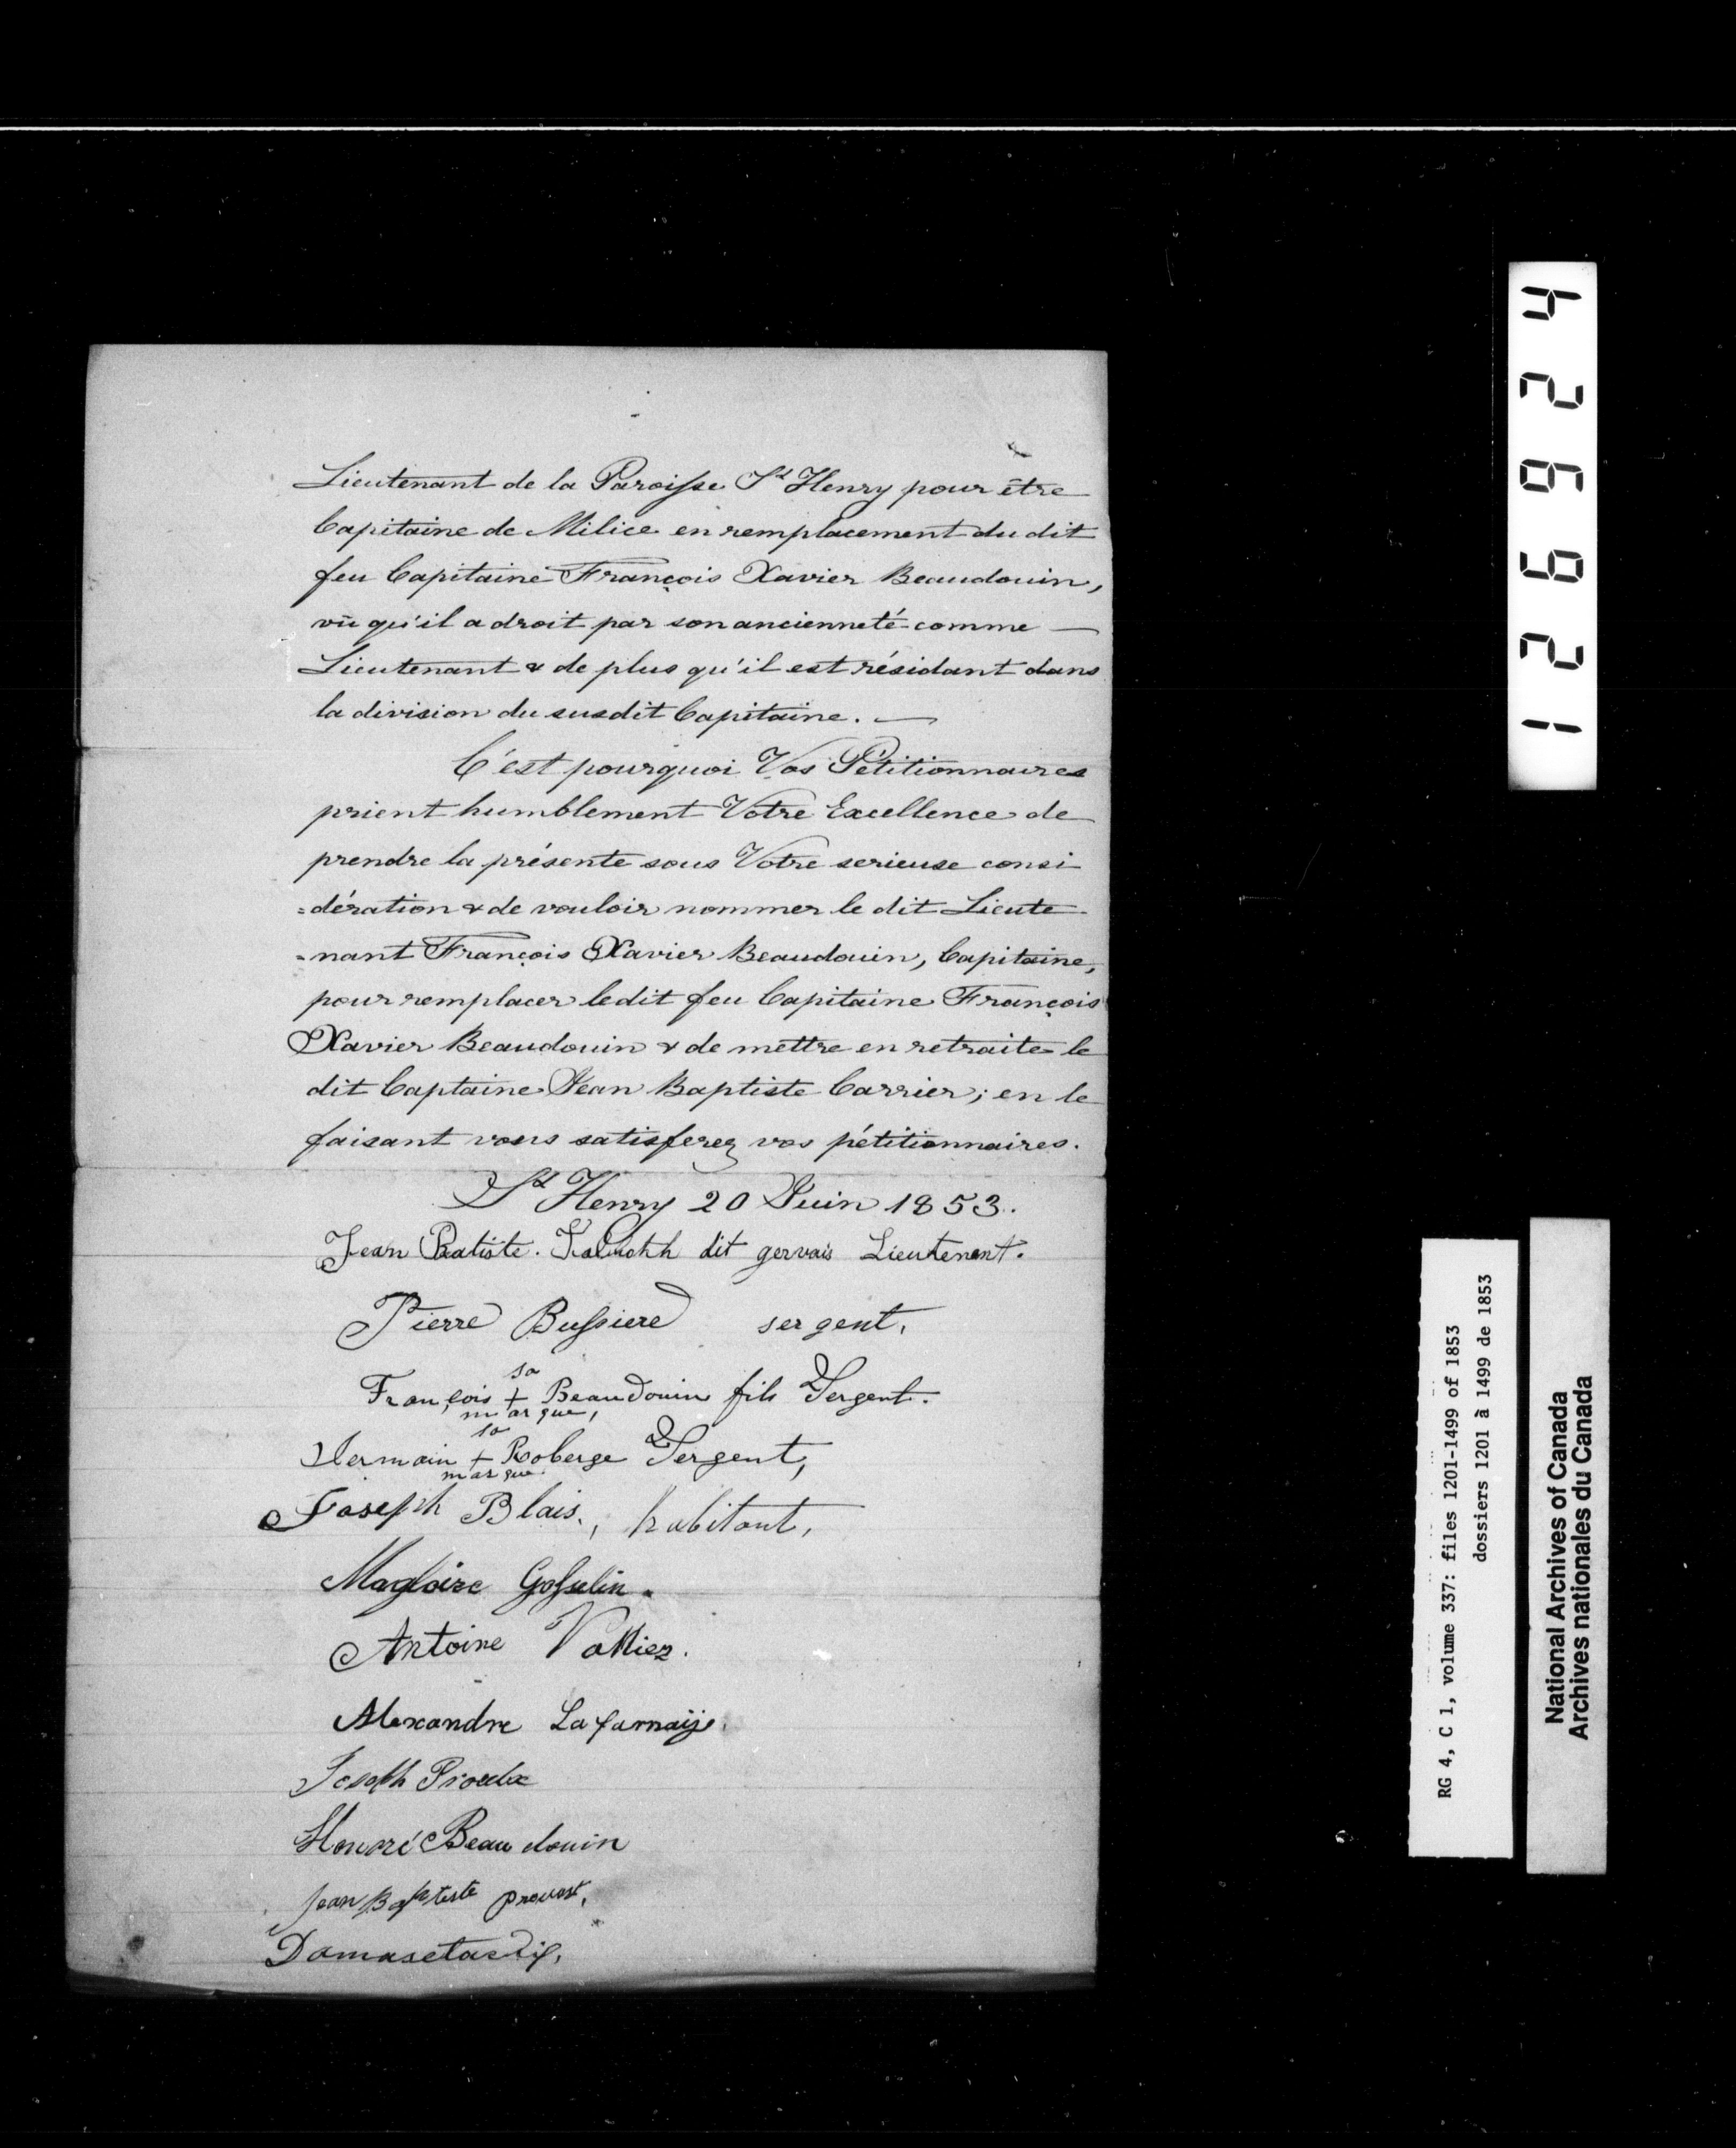 Lieutenant de la Paroisse St Henry pour être
Capitaine de Milice en remplacement du dit
feu Capitaine François Xavier Beaudouin,
vû qu'il a droit par son ancienneté comme —
Lieutenant & de plus qu'il est résidant dans
la division du susdit Capitaine. —
C'est pourquoi Vos Pétitionnaires
prient humblement Votre Excellence de
prendre la présente sous Votre serieuse consi
=dération & de vouloir nommer le dit Lieute-
=nant François Xavier Beaudouin, Capitaine,
pour remplacer le dit feu Capitaine François
Xavier Beaudouin & de mettre en retraite le
dit Captaine Jean Baptiste Carrier; en le
faisant vous satisferez vos pétitionnaires.
St Henry 20 Juin 1853.
Jean Batiste. dit gervais Lieutenent.
Pierre Bussiere sergent,
sa
François + Beaudouin fils Sergent.
marque,
sa
Germain + Roberge Sergent,
marque
Joseph Blais., habitant,
Magloire Gosselin.
Antoine
Alexandre
Joseph Proulx
Honoré Beaudouin
Jean Baptiste provost,
Damase tardif,
126924
RG 4, C 1, volume 337: files 1201-1499 of 1853
dossiers 1201 à 1499 de 1853
National Archives of Canada
Archives nationales du Canada